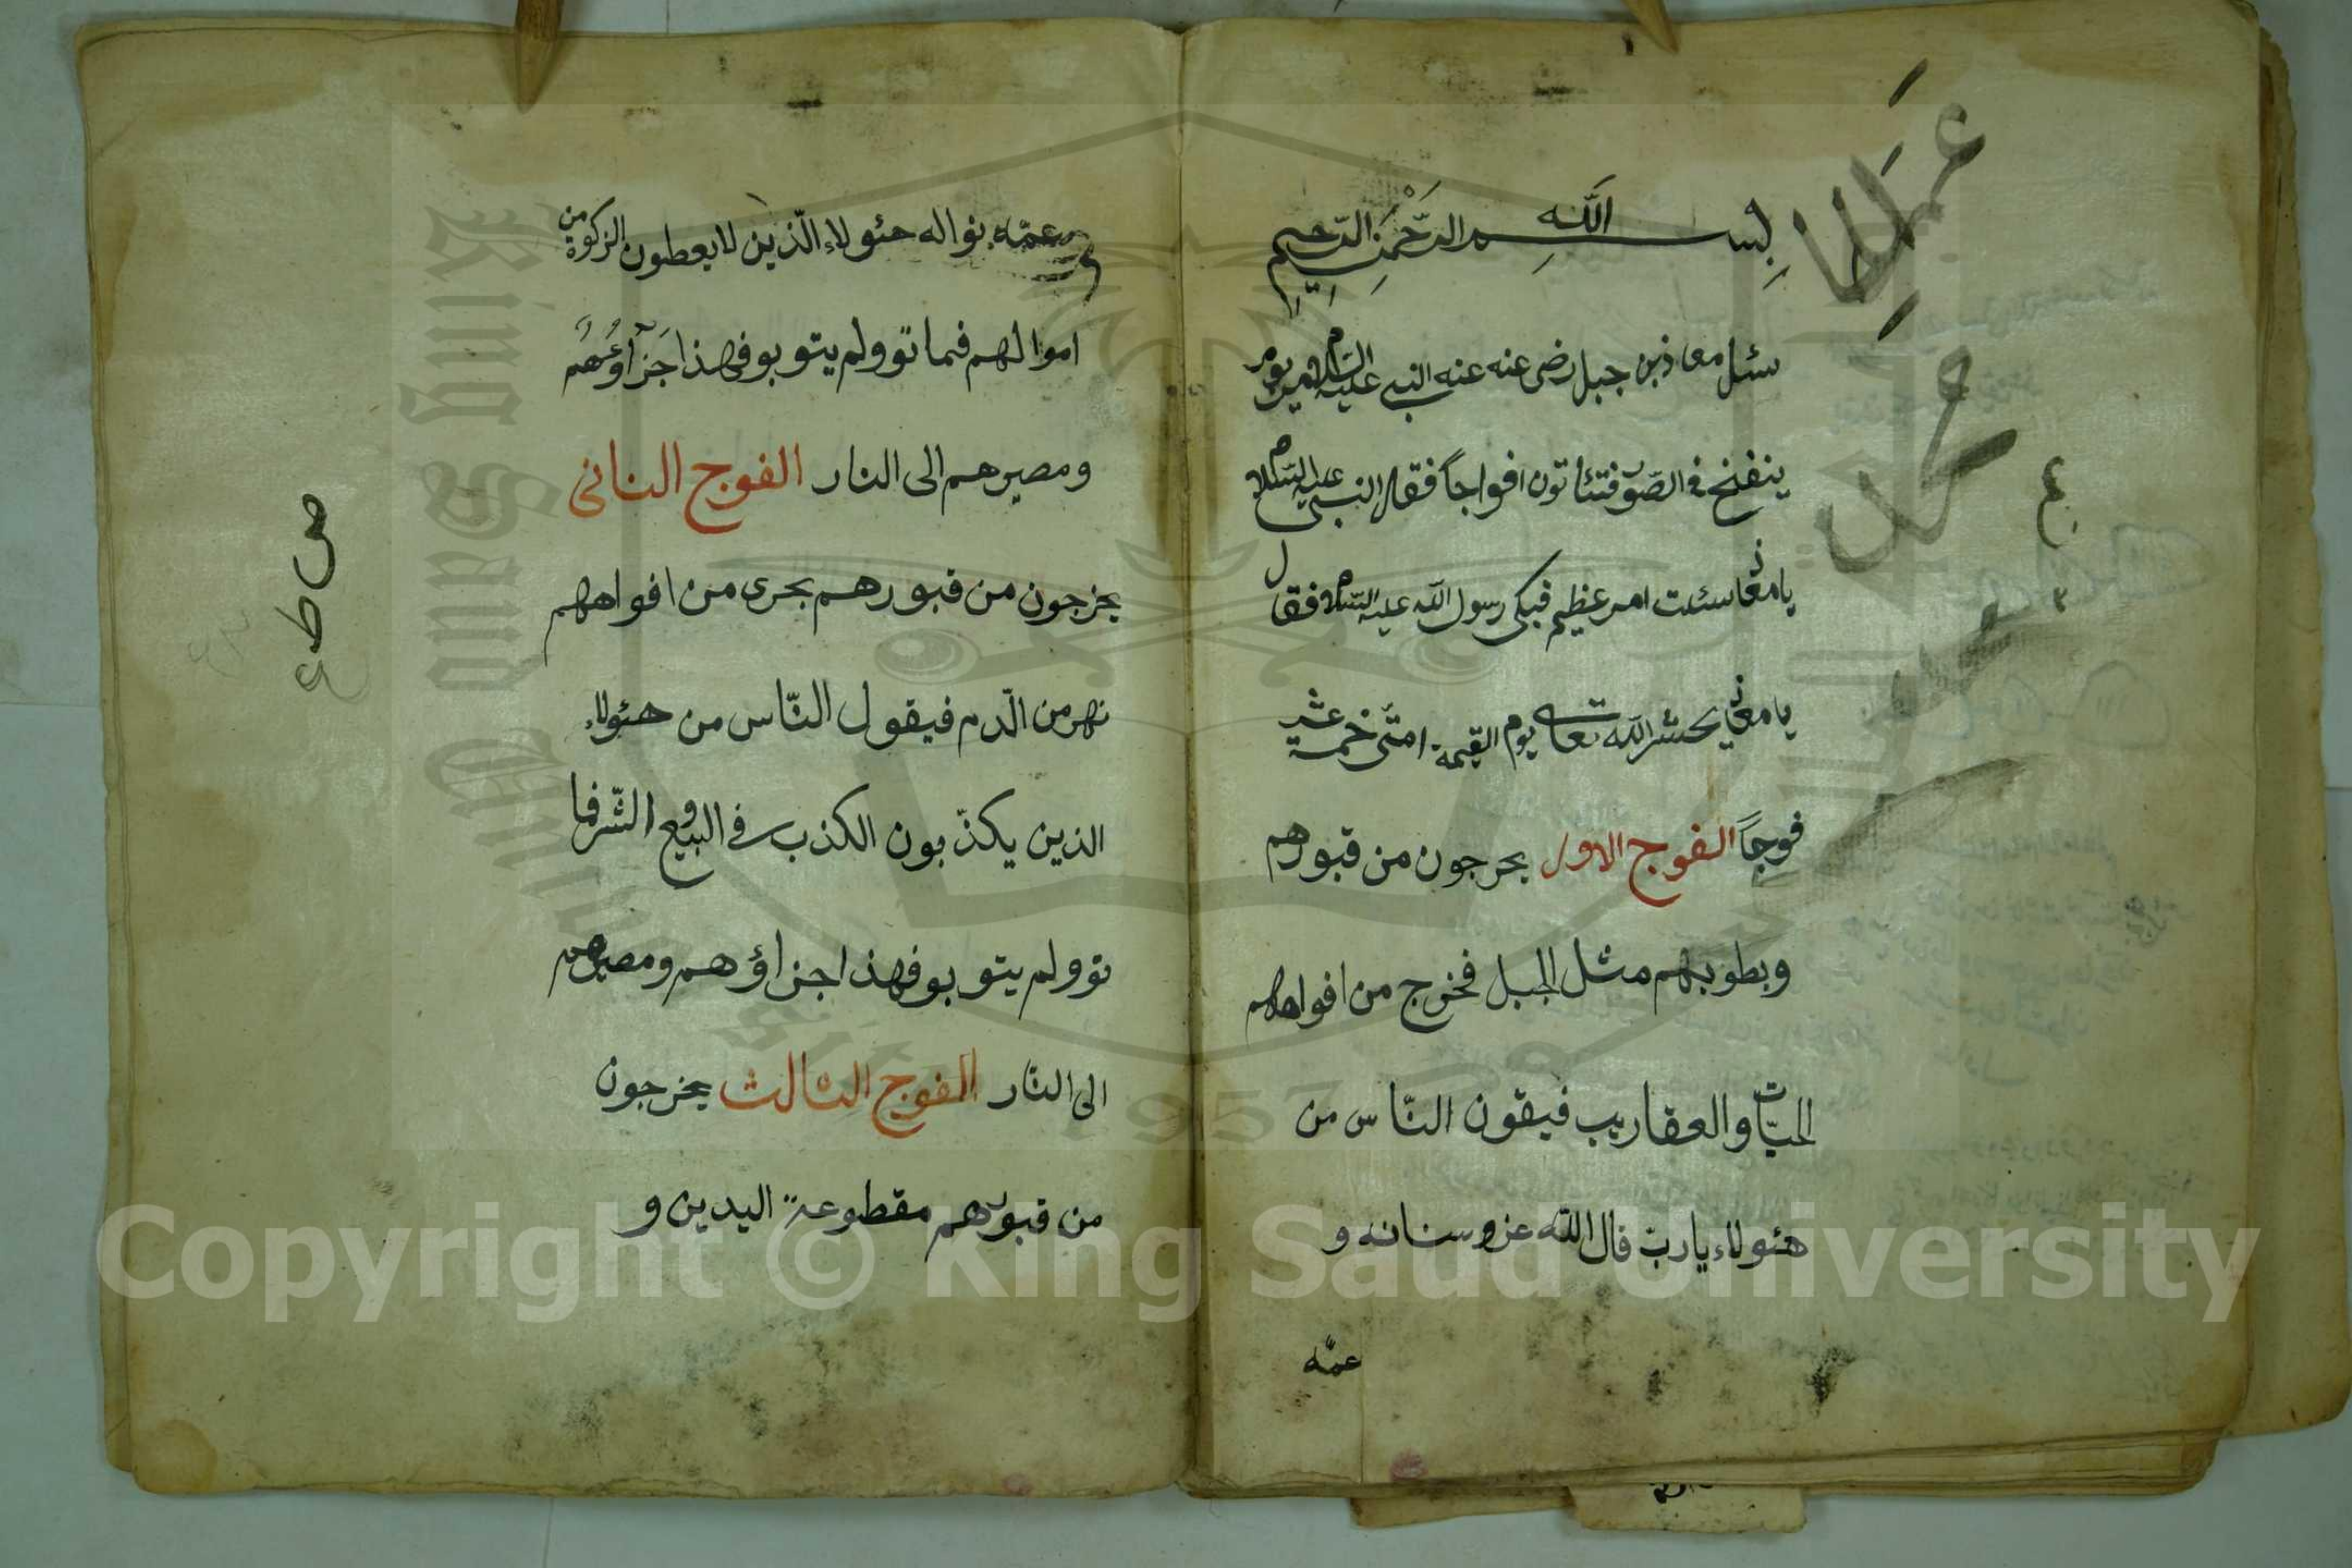 بسم الله الرحمن الرحيم
سئل معاذ بن جبل رضى عنه عنه النبي عليه السلام يوم
ينفخ في الصور فتئاتون افواجاً فقال النبي عليه السلام
يا معاذ سئلت امر عظيم فبكى رسول الله عليه السلام فقال
يا معاذ يحشر الله تعا يوم القيمة امتى خمسة عشر
فوجاً الفوج الاول يخرجون من قبورهم
وبطونهم مثل الجبل فخرج من افواههم
الحيّات والعقاريب فيقون النّاس من
هئولاء يارب قال الله عز وسنانه و
عمّه
وعمّه نواله هئولاء الّذين لا يعطون الزكوة من
اموالهم فماتوو لم يتوبو فهذا جَزآؤُهُم
ومصيرهم الى النار الفوج الثانى
يخرجون من قبورهم يجرى من افواههم
نهر من الدّم فيقول النّاس من هئولاء
الذين يكذّبون الكذب في البيع والشّر فما
توو لم يتوبو فهذا جزاؤهم ومصيرهم
الى النّار الفوج الثالث يخرجون
من قبورهم مقطوعة اليدين و
ص ط ع
King Saud University
1957
Copyright © King Saud University